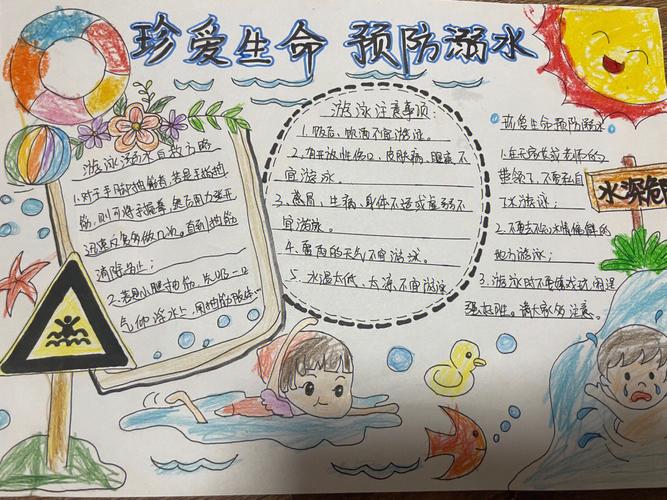 珍爱生命 预防溺水
游泳溺水自救方略
1.对于手脚抽筋者,若是手指抽
筋,则可将手握拳,然后用力张开
迅速反复多做几次,直到抽筋
消除为止;
2.若是小腿抽筋,先吸一口
气仰浮水上,用抽筋肢体
游泳注意事项:
1.饭后、饮酒不宜游泳。
2.有开放性伤口、皮肤病、眼疾不
宜游泳
3.感冒、生病、身体不适或虚弱不
宜游泳。
4.雷雨的天气不宜游泳。
5.水温太低、太凉不宜游泳
珍爱生命预防溺水
1.在无家长或老师的
带领下,不要私自
下水游泳;
2.不要去不知水情
的地方游泳;
3.游泳时不要嬉戏打闹,逞
强好胜。请大家多注意。
水深危